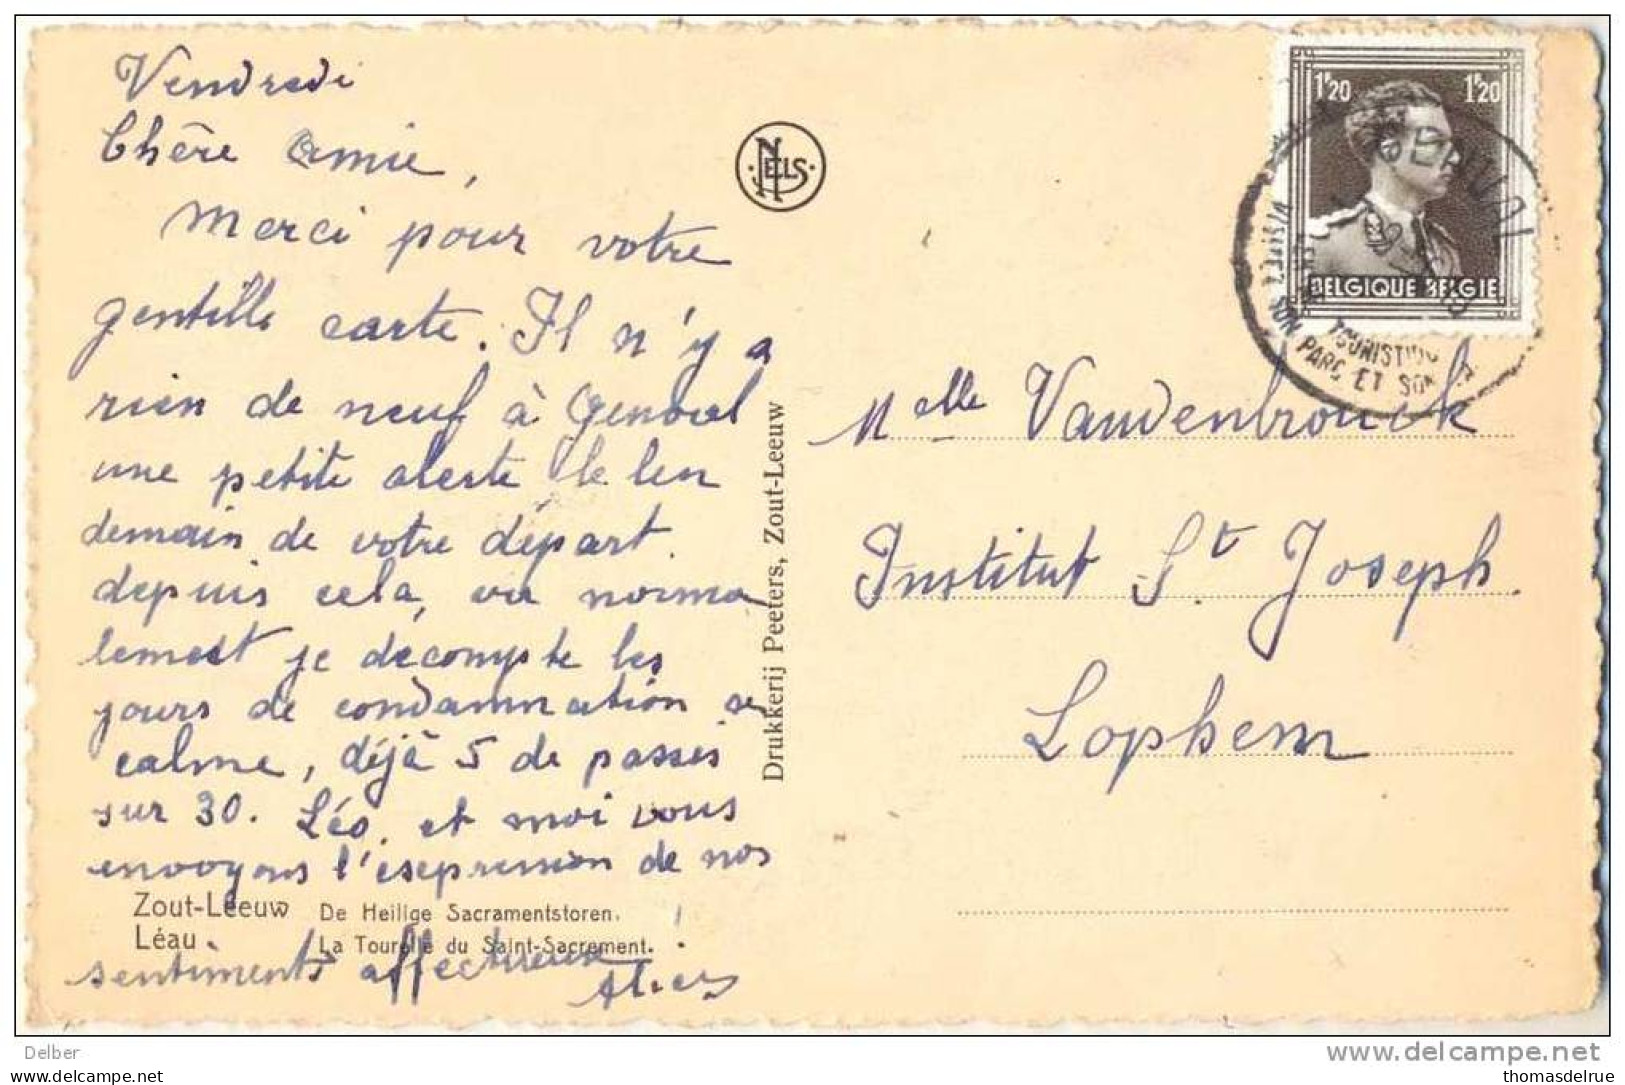 Vendredi
Chère Amie,
Merci pour votre
gentille carte. Il n'y a
rien de neuf à Genval
une petite alerte le len
demain de votre départ.
depuis cela, va norma
lement je décompte les
jours de condamnation se
calme, déjà 5 de passés
sur 30. Léo et moi vous
envoyons l'esepression de nos
sentiments affectueux
Zout-Leeuw De Heilige Sacramentstoren.
Léau. La Tourelle du Saint-Sacrement.
NELS
Drukkerij Peeters, Zout-Leeuw
1F20 1F20
BELGIQUE BELGIE
VISITEZ SON PARC ET SON
TOURISTIQUE
Melle Vandenbrouck
Institut St. Joseph.
Lophem
Delber
www.delcampe.net
thomasdelrue